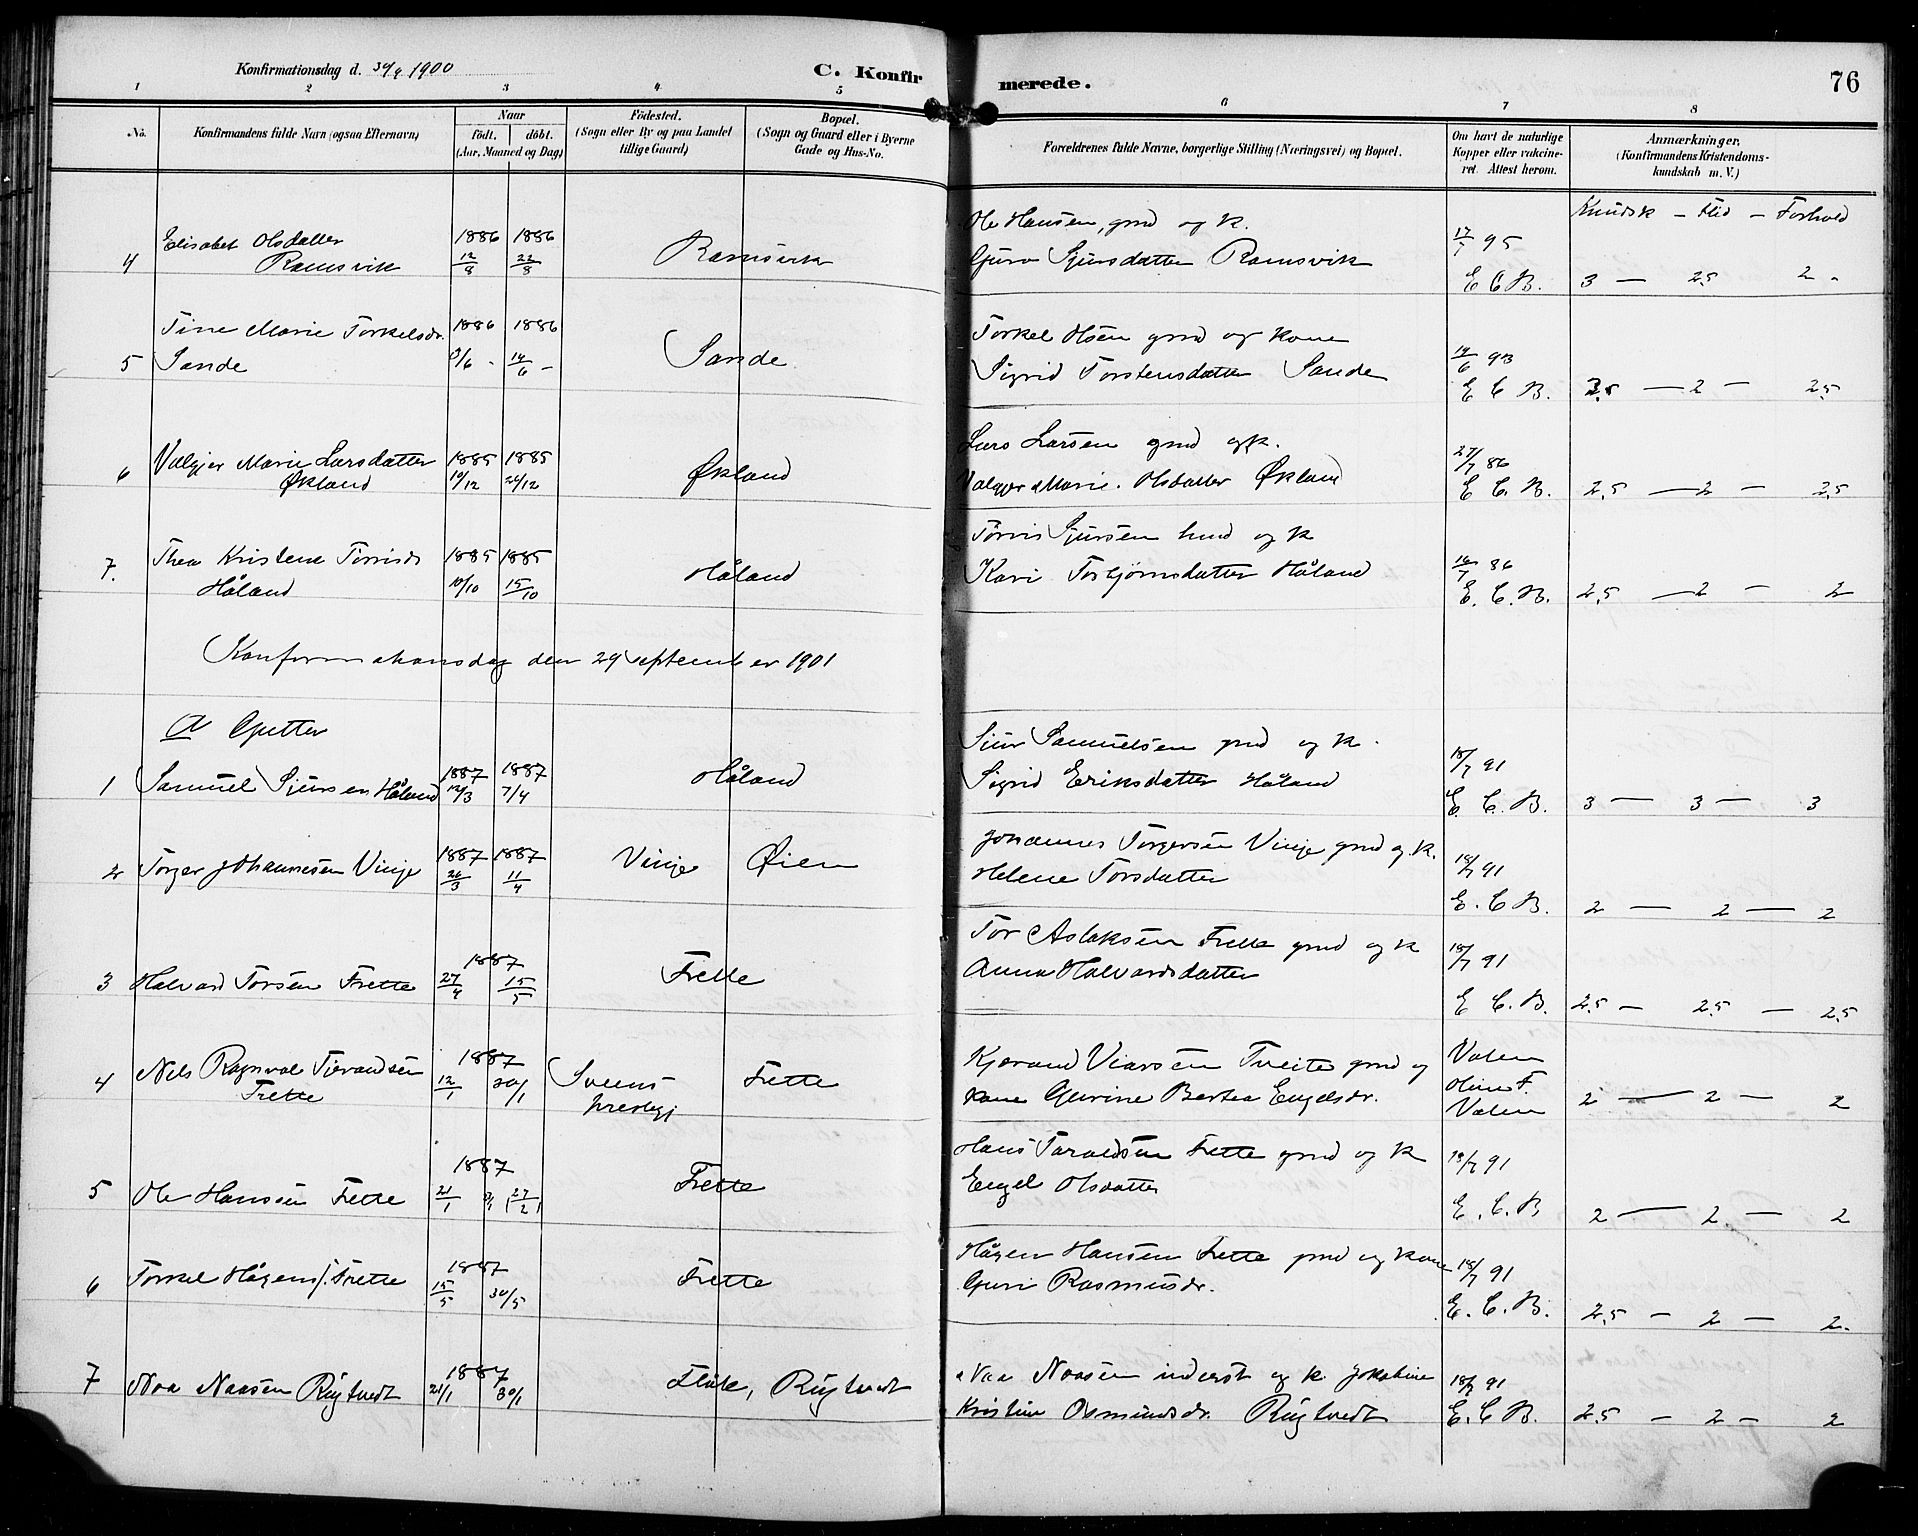 Konfirmationsdag d. 30/9 1900
C. Konfirmerede.
76
1 2 3 4 5 6 7 8
No.
Konfirmandens fulde Navn (ogsaa Efternavn)
Naar
födt. döbt.
(Aar, Maaned og Dag)
Födested.
(Sogn eller By og paa Landet
tillige Gaard)
Bopæl.
(Sogn og Gaard eller i Byerne
Gade og Hus-No.
Forældrenes fulde Navne, borgerlige Stilling (Næringsvei) og Bopæl.
Om havt de naturlige
Kopper eller vakcine-
ret. Attest herom.
Anmærkninger.
(Konfirmandens Kristendoms-
kundskab m. V.)
Kundsk – Flid – Forhold
Elisabet Olsdatter 1886 1886 Ole Hansen, gmd og k.
4 Ramsvik 12/8 22/8 Ramsvik Guro Sjursdatter Ramsvik 17/7 95
E C B. 3 – 2,5 2 -
Tine Marie Torkelsdr. 1886 1886 Torkel Olsen gmd og kone
5 Sande 3/6 - 14/6 - Sande Sigrid Torstensdatter Sande 14/6 93
E C B. 2,5 – 2 – 2,5
Valgjer Marie Larsdatter 1885 1885 Lars Larsen gmd og k.
6 Økland 19/12 26/12 Økland Valgjer Marie Olsdatter Økland 27/7 86
E. C. B. 2,5 – 2 – 2,5
Thea Kristene Torrisdr 1885 1885 Torris Sjursen hmd og k
7. Håland 10/10 15/10 Håland Kari Torbjørnsdatter Håland 16/7 86
E. C. B. 2,5 – 2 – 2
Konfirmationsdag den 29 september 1901
A Gutter
1 Samuel Sjursen Håland 1887 12/3 1887 7/4 Håland Sjur Samuelsen gmd og k.
Sigrid Eriksdatter Håland 18/7 91
E. C. B. 3 – 3 – 3
2 Torger Johannesen Vinje 1887 26/3 1887 11/4 Vinje Øien Johannes Torgersen Vinje gmd og k.
Helene Torsdatter 18/7 91
E. C B. 2 – 2 – 2
3 Halvard Torsen Frette 1887 27/4 15/5 Frette Tor Aslaksen Frette gmd og k
Anna Halvardsdatter 18/7 91
E C. B. 2,5 – 2,5 – 2,5
4 Nils Ragnval Tjerandsen 1887
Frette 12/1 30/1 Sveens
prestegj Frette Kjerand Viarsen Tveite gmd og
kone Gurine Bertea Engelsdr. Valen
Oline F.
Valen 2 – 2 – 2
5 Ole Hansen Frette 1887 21/1 (27/2) Frette Hans Taraldsen Frette gmd og k
Engel Olsdatter 18/7 91
E. C. B 2 – 2. – 2
6 Torkel Hågens. Frette 1887 15/5 30/5 Frette Hågen Hansen Frette gmd og kone
Guri Rasmusdr. 18/7 91
E. C. B. 2,5 – 2 – 2.
7 Naa Naasen Rügtvedt 1887 21/1 30/1 Fløte, Rügtvedt Naa Naasen inderst og k. Jakobine
Kristine Osmundsdr. Rügtvedt 18/7 91
E. C B. 2,5 – 2 – 2